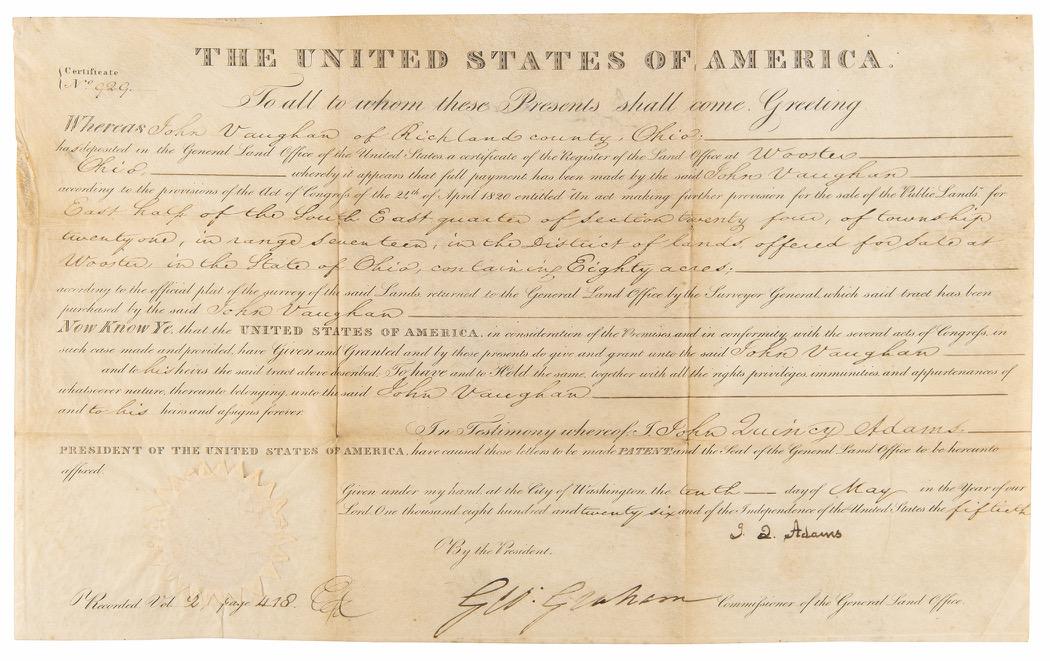 THE UNITED STATES OF AMERICA.
Certificate
No. 929.
To all to whom these Presents shall come, Greeting
Whereas John Vaughan of Richland county, Ohio.
has deposited in the General Land Office of the United States, a certificate of the Register of the Land Office at Wooster
Ohio, whereby it appears that full payment has been made by the said John Vaughan
according to the provisions of the Act of Congress of the 24th of April 1820 entitled "An act making further provision for the sale of the Public Lands" for
East half of the South East quarter of section twenty four, of township
twenty one, in range seventeen, in the District of lands offered for sale at
Wooster, in the State of Ohio, containing Eighty acres;
according to the official plat of the survey of the said Lands, returned to the General Land Office by the Surveyor General, which said tract has been
purchased by the said John Vaughan
Now Know Ye, that the UNITED STATES OF AMERICA, in consideration of the Premises and in conformity with the several acts of Congress, in
such case made and provided, have Given and Granted and by these presents do give and grant unto the said John Vaughan
and to his heirs the said tract above described. To have and to Hold the same, together with all the rights privileges, immunities, and appurtenances of
whatsoever nature, thereunto belonging, unto the said John Vaughan
and to his heirs and assigns forever.
In Testimony whereof, I, John Quincy Adams.
PRESIDENT OF THE UNITED STATES OF AMERICA, have caused these letters to be made PATENT, and the Seal of the General Land Office to be hereunto
affixed.
Given under my hand, at the City of Washington, the tenth day of May in the Year of our
Lord One thousand eight hundred and twenty six and of the Independence of the United States the fiftieth
J. Q. Adams
By the President.
Recorded Vol 2 page 418.
G. W. Graham Commissioner of the General Land Office.